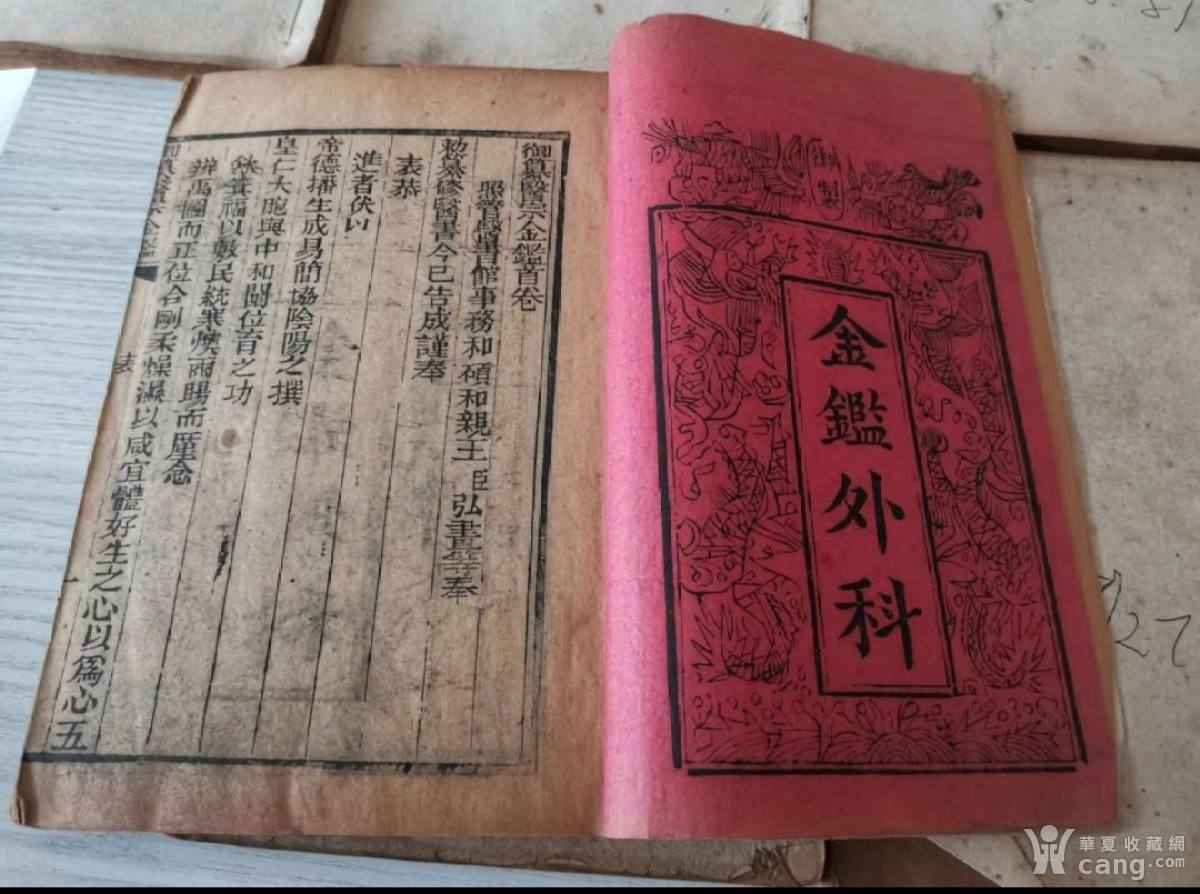 御製
金鑑外科
御纂醫宗金鑑首卷
照管醫書館事務和碩和親王臣弘晝等奉
勅纂修醫書今已告成謹奉
表恭
進者伏以
帝德播生成易簡協陰陽之撰
皇仁大胞與中和闢位育之功
養福以敷民統寒燠雨暘而厪念
辨禹圖而正位合剛柔燥濕以咸宜體好生之心以為心五
表
一
127
華夏收藏網
cang.com